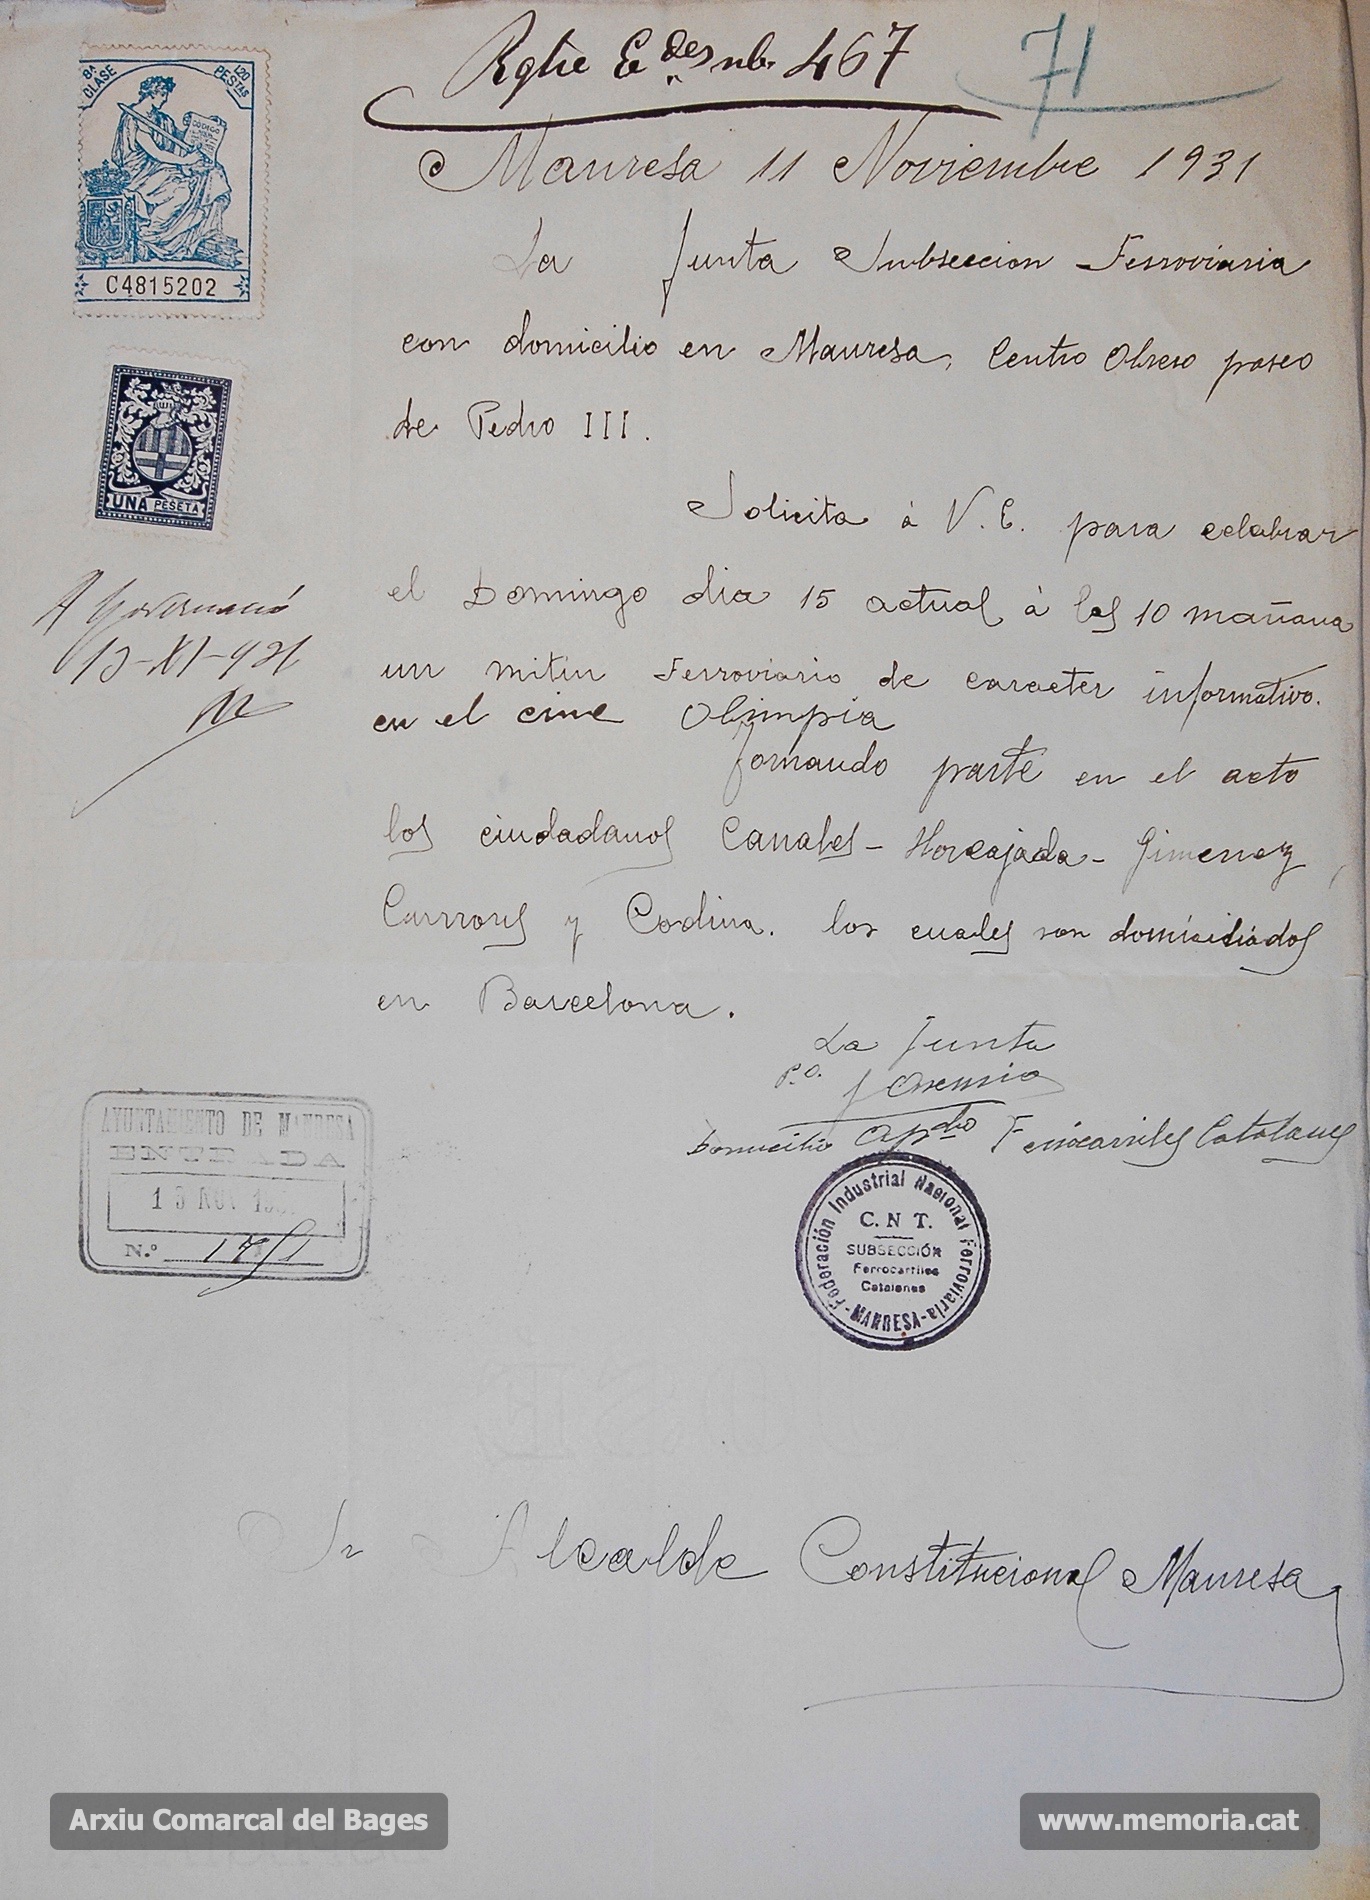 Rgtre Edes nb. 467
71
8ª CLASE
1'20 PESTAS
CODIGO
C4815202
UNA PESETA
Manresa 11 Noviembre 1931
La Junta Subseccion Ferroviaria
con domicilio en Manresa, Centro Obrero paseo
de Pedro III.
Solicita á V. E. para celebrar
el Domingo dia 15 actual á las 10 mañana
un mitin Ferroviario de caracter informativo.
en el cine Olimpia
formando parte en el acto
los ciudadanos Canales - Horcajada - Gimenez,
y Codina. los cuales son domiciliados
en Barcelona.
A Governació
13-XI-931
La Junta
P.O. J Asensio
Domicilio apdro Ferrocarriles Catalanes
AYUNTAMIENTO DE MANRESA
ENTRADA
13 NOV 193
N.º 1751
Federación Industrial Nacional Ferroviaria
C. N T.
SUBSECCIÓN
Ferrocarriles
Catalanes
-MANRESA-
Sr Alcalde Constitucional Manresa
Arxiu Comarcal del Bages
www.memoria.cat